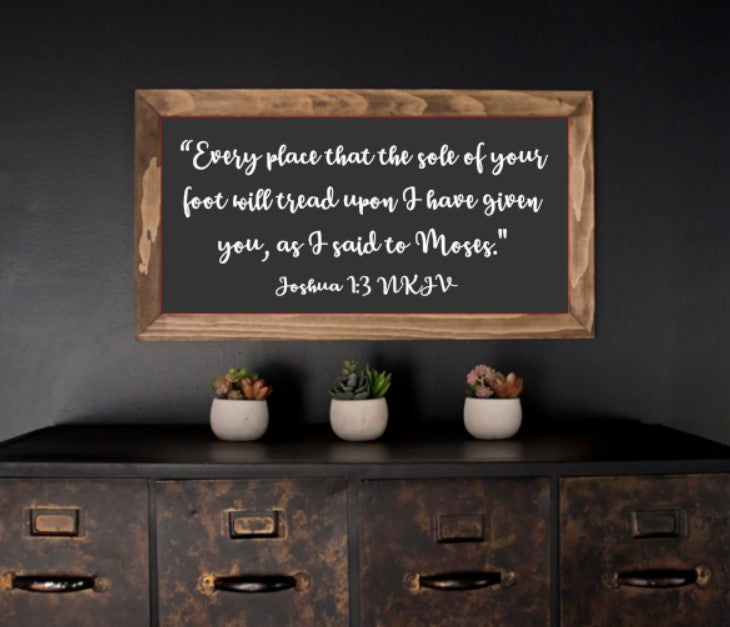 “Every place that the sole of your
foot will tread upon I have given
you, as I said to Moses."
Joshua 1:3 NKJV